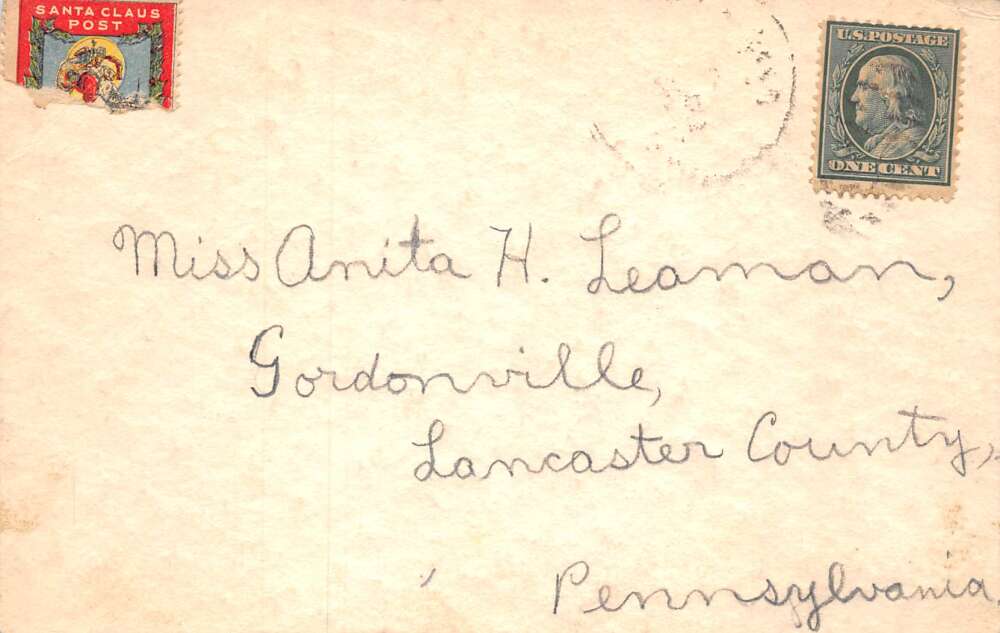 SANTA CLAUS
POST
U.S. POSTAGE
ONE CENT
Miss Anita H. Leaman,
Gordonville,
Lancaster County,
Pennsylvania.